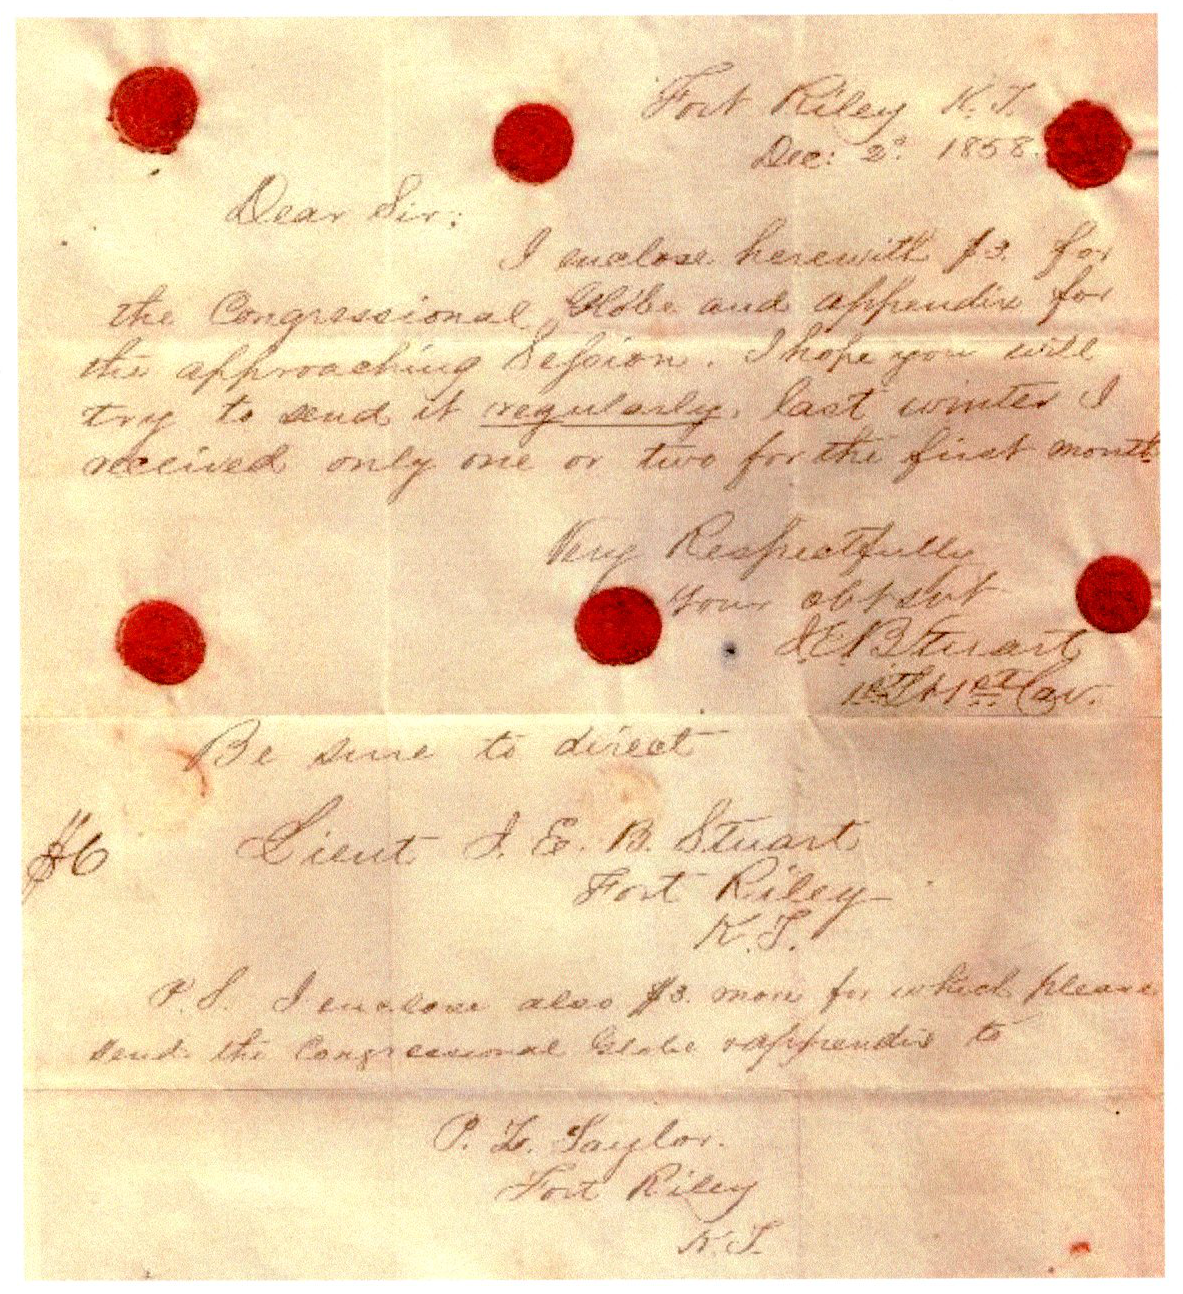 Fort Riley K. T.
Dec: 2d. 1858.
Dear Sir;
I enclose herewith $3. for
the Congressional Globe and appendix for
the approaching Session. I hope you will
try to send it regularly, last winter I
received only one or two for the first month.
Very Respectfully
Your obt svt
J.E.B. Stuart
1st Lt 1st Cav.
Be sure to direct
$6
Lieut J. E. B. Stuart
Fort Riley
K. T.
P. S. I enclose also $3. more for which please
send the Congressional Globe & appendix to
P. L. Taylor.
Fort Riley
K. T.